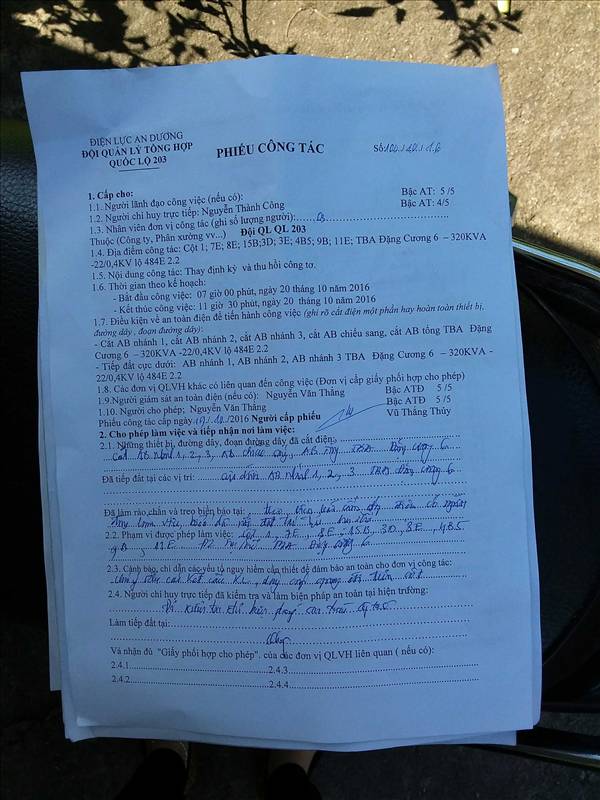 ĐIỆN LỰC AN DƯƠNG
ĐỘI QUẢN LÝ TỔNG HỢP
QUỐC LỘ 203
PHIẾU CÔNG TÁC
Số
1. Cấp cho:
1.1. Người lãnh đạo công việc (nếu có): Bậc AT: 5 /5
1.2. Người chỉ huy trực tiếp: Nguyễn Thành Công Bậc AT: 4/5
1.3. Nhân viên đơn vị công tác (ghi số lượng người):
Thuộc (Công ty, Phân xưởng vv...) Đội QL QL 203
1.4. Địa điểm công tác: Cột 1; 7E; 8E; 15B;3D; 3E; 4B5; 9B; 11E; TBA Đặng Cương 6 – 320KVA
-22/0,4KV lộ 484E 2.2
1.5. Nội dung công tác: Thay định kỳ và thu hồi công tơ.
1.6. Thời gian theo kế hoạch:
- Bắt đầu công việc: 07 giờ 00 phút, ngày 20 tháng 10 năm 2016
- Kết thúc công việc: 11 giờ 30 phút, ngày 20 tháng 10 năm 2016
1.7. Điều kiện về an toàn điện để tiến hành công việc (ghi rõ cắt điện một phần hay hoàn toàn thiết bị,
đường dây , đoạn đường dây):
- Cắt AB nhánh 1, cắt AB nhánh 2, cắt AB nhánh 3, cắt AB chiếu sang, cắt AB tổng TBA Đặng
Cương 6 – 320KVA -22/0,4KV lộ 484E 2.2
- Tiếp đất cực dưới: AB nhánh 1, AB nhánh 2, AB nhánh 3 TBA Đặng Cương 6 – 320KVA -
22/0,4KV lộ 484E 2.2
1.8. Các đơn vị QLVH khác có liên quan đến công việc (Đơn vị cấp giấy phối hợp cho phép)
1.9.Người giám sát an toàn điện (nếu có): Nguyễn Văn Thăng Bậc ATĐ 5 /5
1.10. Người cho phép; Nguyễn Văn Thăng Bậc ATĐ 5 /5
Phiếu công tác cấp ngày 19/10/2016 Người cấp phiếu Vũ Thăng Thủy
2. Cho phép làm việc và tiếp nhận nơi làm việc:
2.1. Những thiết bị, đường dây, đoạn đường dây đã cắt điện:
cắt AB nhánh 1, 2, 3, AB chiếu sáng, AB tổng TBA Đặng cương 6
Đã tiếp đất tại các vị trí: cực dưới AB nhánh 1, 2, 3 TBA Đặng cương 6
Đã làm rào chắn và treo biển báo tại:
2.2. Phạm vi được phép làm việc: Cột 1, 7E, 8E, 15B, 3D, 3E, 4B5
9B, 11E TBA Đặng cương 6
2.3. Cảnh báo, chỉ dẫn các yếu tố nguy hiểm cần thiết để đảm bảo an toàn cho đơn vị công tác:
2.4. Người chỉ huy trực tiếp đã kiểm tra và làm biện pháp an toàn tại hiện trường:
Làm tiếp đất tại:
Và nhận đủ "Giấy phối hợp cho phép". của các đơn vị QLVH liên quan ( nếu có):
2.4.1 2.4.3
2.4.2 2.4.4